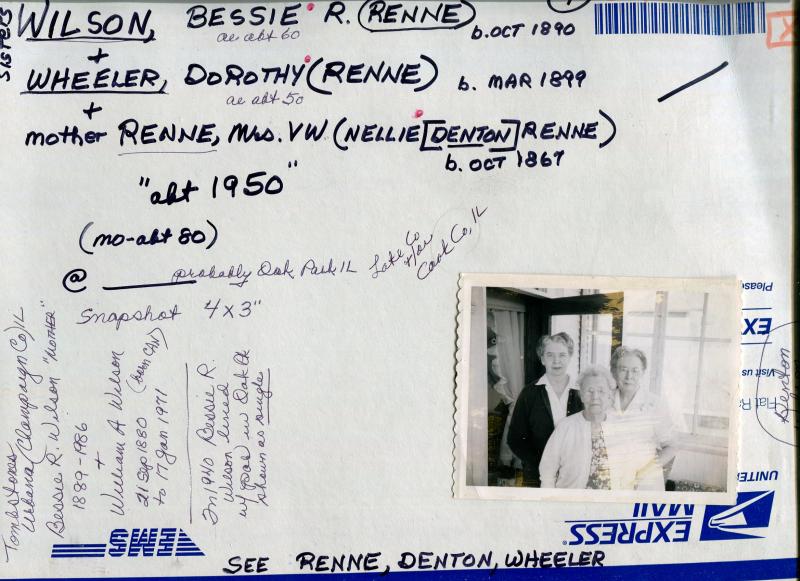 SISTERS
WILSON, BESSIE R. (RENNE) b. OCT 1890
ae abt 60
+
WHEELER, DOROTHY (RENNE) b. MAR 1899
ae abt 50
+
mother RENNE, Mrs. VW (NELLIE [DENTON] RENNE)
b. OCT 1867
"abt 1950"
(mo-abt 80)
@ ______ probably Oak Park IL
Lake Co
&/or
Cook Co, IL
Snapshot 4x3"
Tombstones
Urbana (Champaign Co) IL
Bessie R. Wilson "MOTHER"
1889-1986
+
William A Wilson
21 Sep 1880 (born CAN)
to 17 Jan 1971
In 1940 Bessie R.
Wilson lived
in Oak Pk
shown as single
Pleas
EX
Visit us
Flat Ra
Denton
UNITE
EXPRESS
MAIL
HMS
SEE RENNE, DENTON, WHEELER